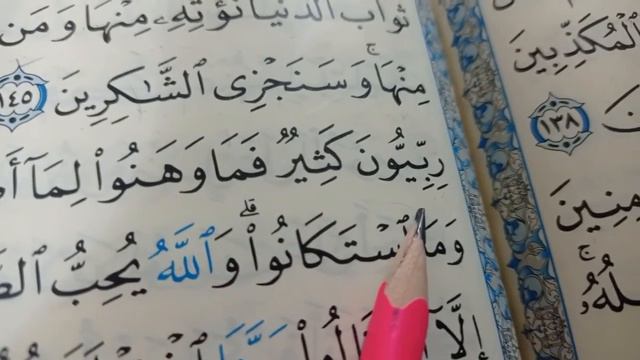 ثَوَابَ ٱلدُّنْيَا نُؤْتِهِۦ مِنْهَا وَمَن
مِنْهَا ۚ وَسَنَجْزِى ٱلشَّـٰكِرِينَ ١٤٥
رِبِّيُّونَ كَثِيرٌ فَمَا وَهَنُوا۟ لِمَآ
وَمَا ٱسْتَكَانُوا۟ ۗ وَٱللَّهُ يُحِبُّ
إِلَّآ
ٱلْمُكَذِّبِينَ
١٣٨